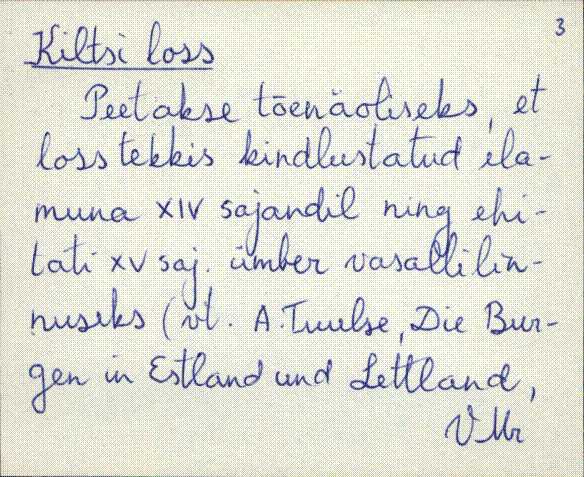 3
Kiltsi loss
Peetakse tõenäoliseks, et
loss tekkis kindlustatud ela-
muna XIV sajandil ning ehi-
tati XV saj. ümber vasallilin-
nuseks (vt. A. Tuulse, Die Bur-
gen in Estland und Lettland,